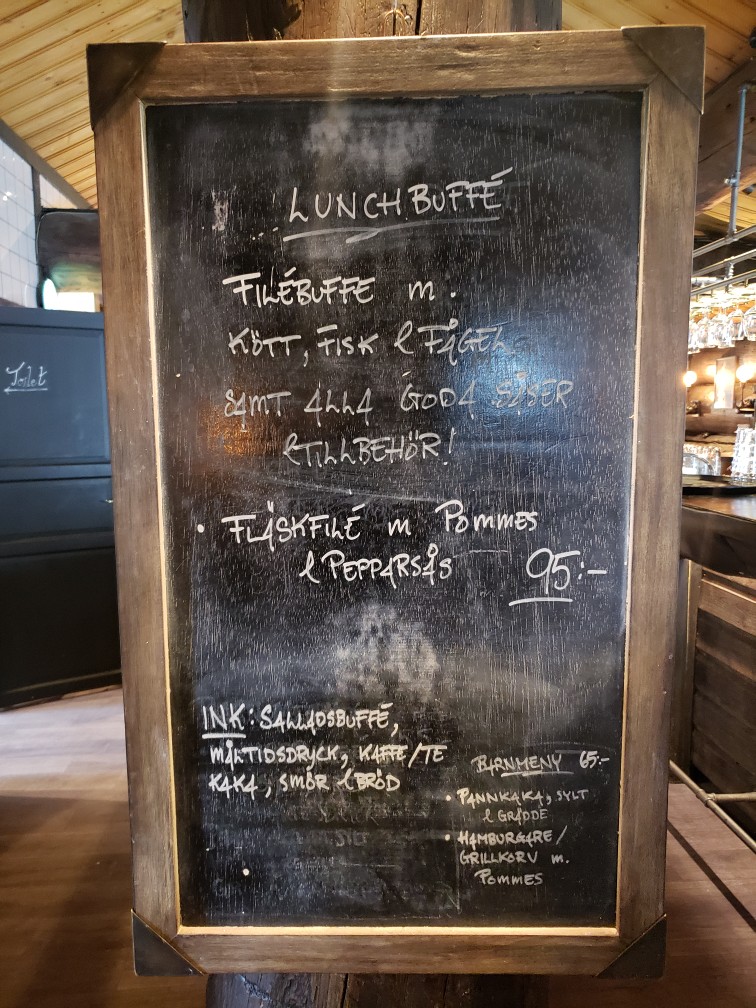 LUNCHBUFFÉ
FILÉBUFFE m.
KÖTT, FISK & FÅGEL
SAMT ALLA GODA SÅSER
& TILLBEHÖR!
• FLÄSKFILÉ m POMMES
& PEPPARSÅS 95:-
INK: SALLADSBUFFÉ,
MÅLTIDSDRYCK, KAFFE/TE
KAKA, SMÖR & BRÖD
BARNMENY 65:-
• PANNKAKA, SYLT
& GRÄDDE
• HAMBURGARE/
GRILLKORV m.
POMMES
Toilet